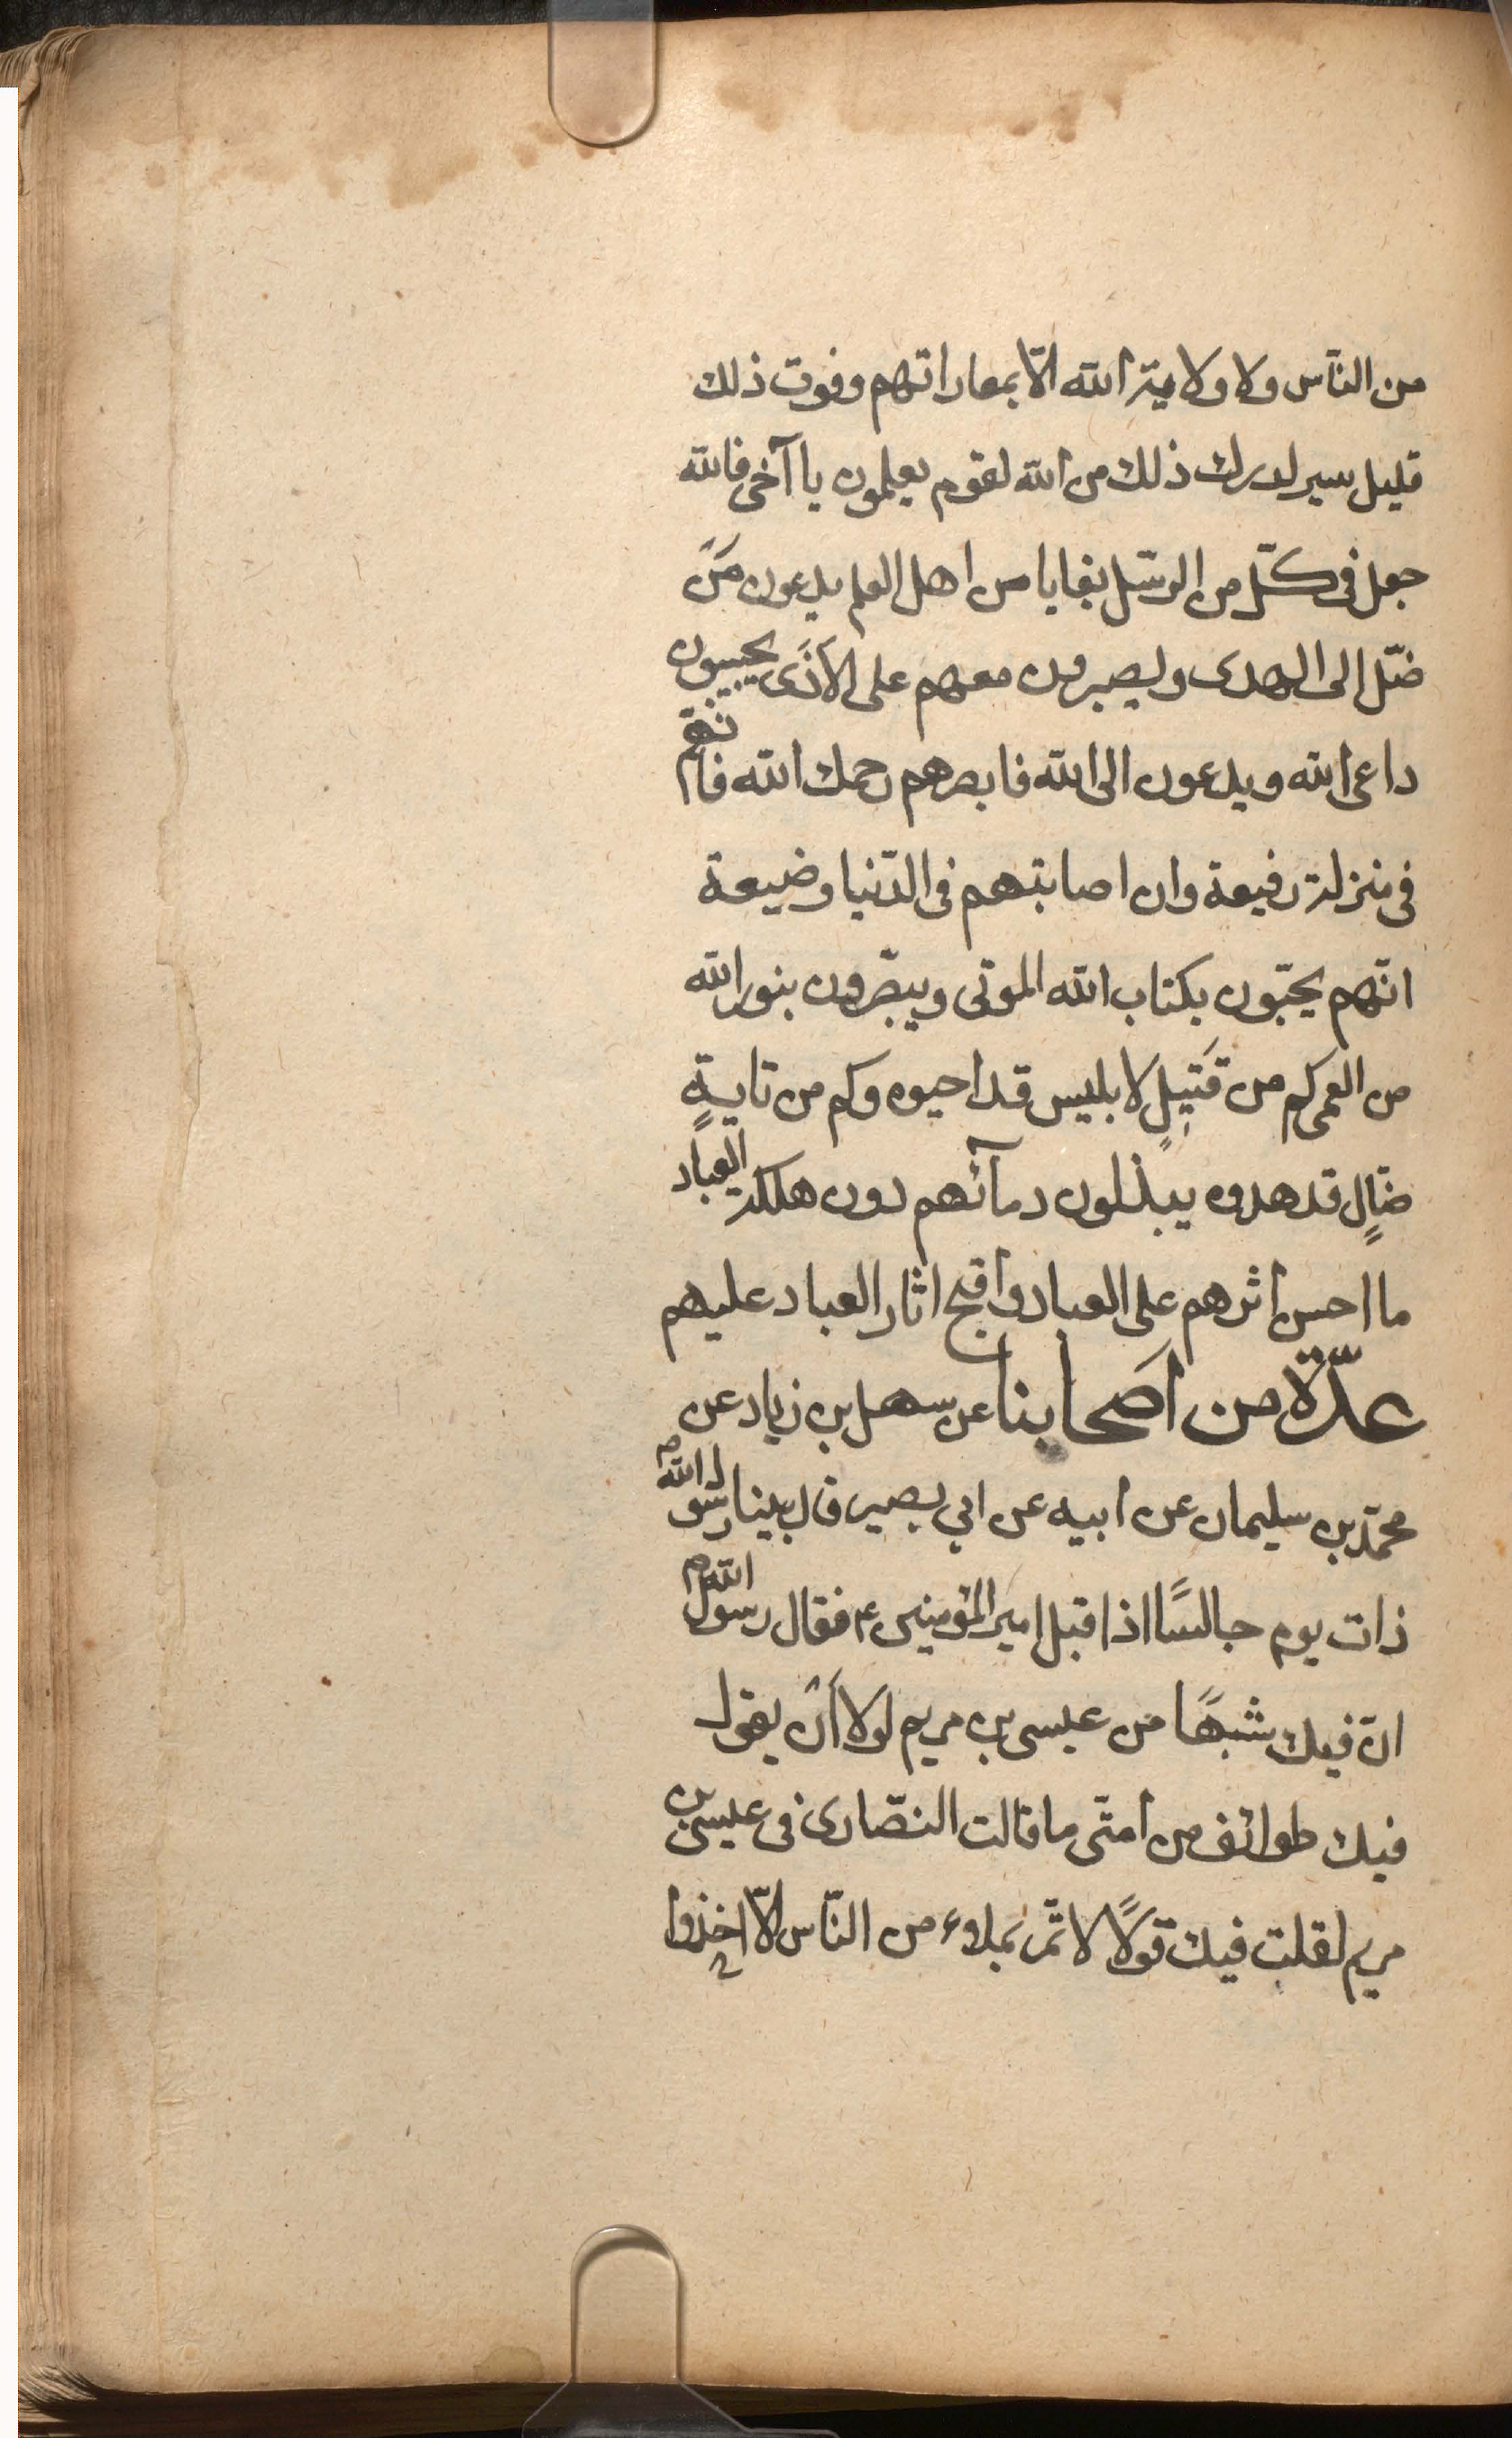 من النّاس ولا ولاية الله الّا بمعاداتهم وفوت ذلك
قليل يسير لدرك ذلك من الله لقوم يعلمون يا آخى فالله
جعل فى كلّ من الرسّل بقايا من اهل العلم يدعون مَنْ
ضلّ الى الهدى ويصبرون معهم على الأذَى يجيبون
داعى الله ويدعون الى الله فابصرهم رحمك الله فانّهم
فى منزلة رفيعة وان اصابتهم فى الدّنيا وضيعة
انّهم يحيّون بكتاب الله الموتى ويبصّرون بنور الله
من العمى كم من قَتيلٍ لابليس قد احيوه وكم من تايهٍ
ضالٍ قد هدوه يبذلون دمآئهم دون هلكة العباد
ما احسن اثرهم على العباد واقبح اثار العباد عليهم
عدّة من اَصحابنا عن سهل بن زياد عن
محمّد بن سليمان عن ابيه عن ابي بصير قال بينا رسول الله ص
ذات يوم جالسًا اذ اقبل امير المؤمنين ع فقال رسول الله ص
انّ فيك شبهًا من عيسى بن مريم لولا أَنْ يقول
فيك طوائف من امتّى ما قالت النصّارى فى عيسى بن
مريم لقلت فيك قولًا لا تمّر بملاء من النّاس الّا اخذوا